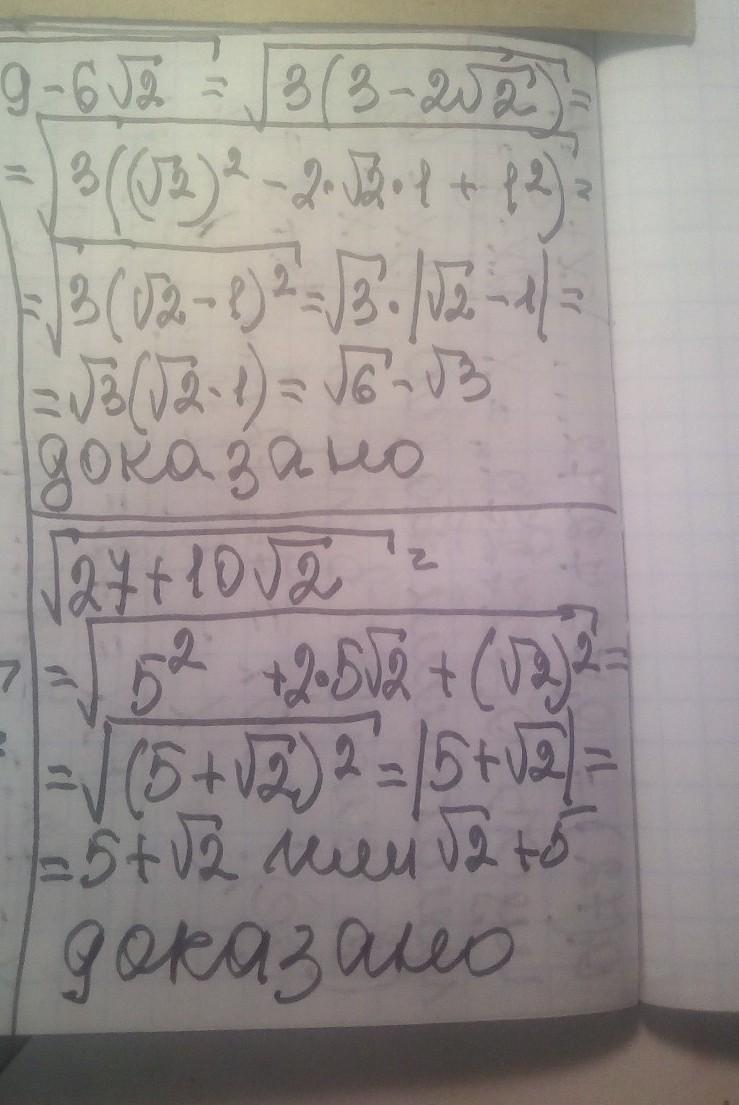 9-6√2 = √(3(3-2√2)) =
= √(3((√2)² - 2·√2·1 + 1²)) =
= √(3(√2-1)²) = √3·|√2-1| =
= √3(√2-1) = √6-√3
доказано
√(27+10√2) =
= √(5² +2·5√2 + (√2)²) =
= √((5+√2)²) = |5+√2| =
= 5+√2 или √2+5
доказано